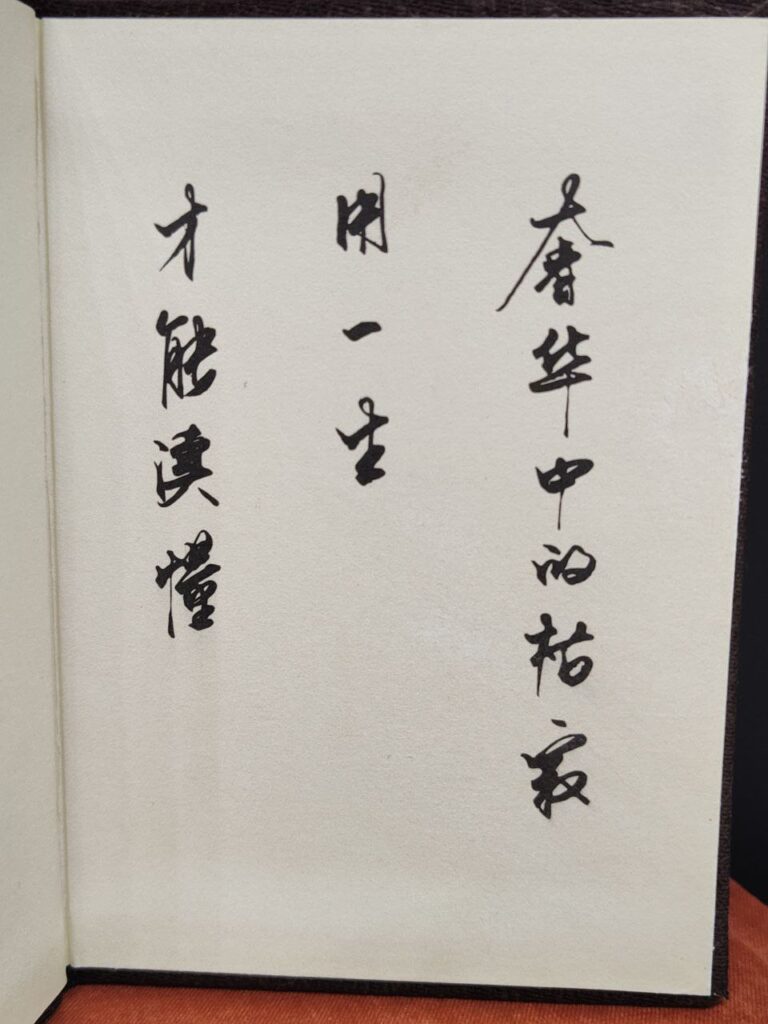 奢华中的枯寂
用一生
才能读懂